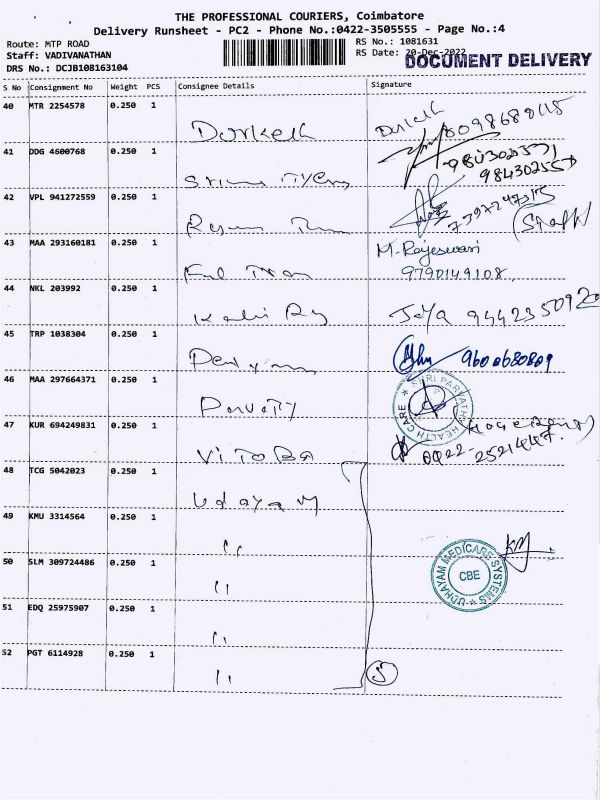 THE PROFESSIONAL COURIERS, Coimbatore
Delivery Runsheet - PC2 - Phone No.:0422-3505555 - Page No.:4
Route: MTP ROAD RS No.: 1081631
Staff: VADIVANATHAN RS Date: 20-Dec-2022
DOCUMENT DELIVERY
DRS No.: DCJB108163104
S No Consignment No Weight PCS Consignee Details Signature
40 MTR 2254578 0.250 1
41 DDG 4600768 0.250 1
42 VPL 941272559 0.250 1
43 MAA 293160181 0.250 1 M. Rajeswari
9790149108
44 NKL 203992 0.250 1
Jaya 9442350920
45 TRP 1038304 0.250 1
9600680809
46 MAA 297664371 0.250 1
SHRI PARVATHY HEALTH CARE
Parvaty
47 KUR 694249831 0.250 1
0422-2521447.
VITOBA
48 TCG 5042023 0.250 1
Udayam
49 KMU 3314564 0.250 1
"
50 SLM 309724486 0.250 1
UDHAYAM MEDICARE SYSTEMS
CBE
"
51 EDQ 25975907 0.250 1
"
52 PGT 6114928 0.250 1
" 5